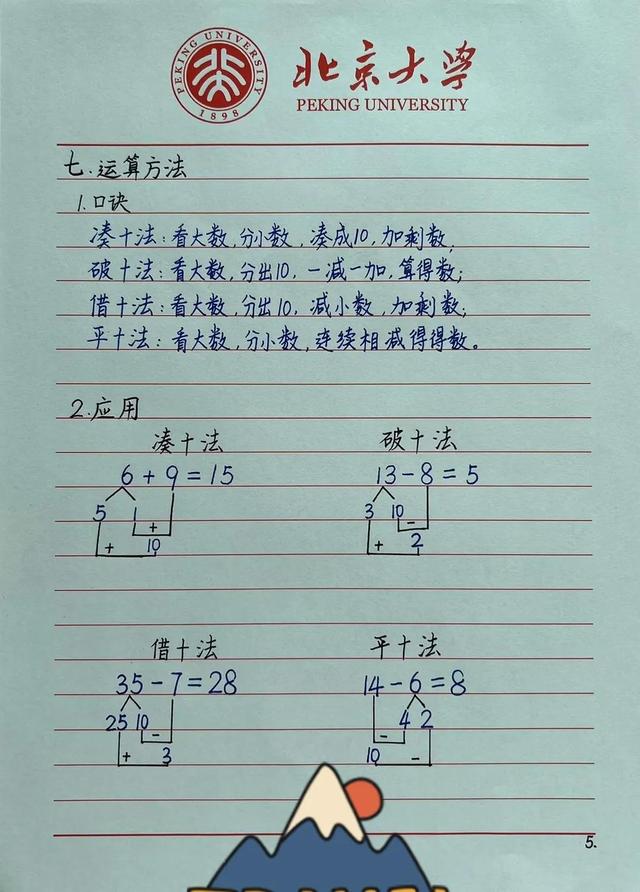 PEKING UNIVERSITY
1898
北京大学
PEKING UNIVERSITY
七.运算方法
1.口诀
凑十法:看大数,分小数,凑成10,加剩数;
破十法:看大数,分出10,一减一加,算得数;
借十法:看大数,分出10,减小数,加剩数;
平十法:看大数,分小数,连续相减得得数。
2.应用
凑十法 破十法
6+9=15 13-8=5
5 1 3 10
+ -
+ 10 + 2
借十法 平十法
35-7=28 14-6=8
25 10 4 2
- -
+ 3 10 -
5.